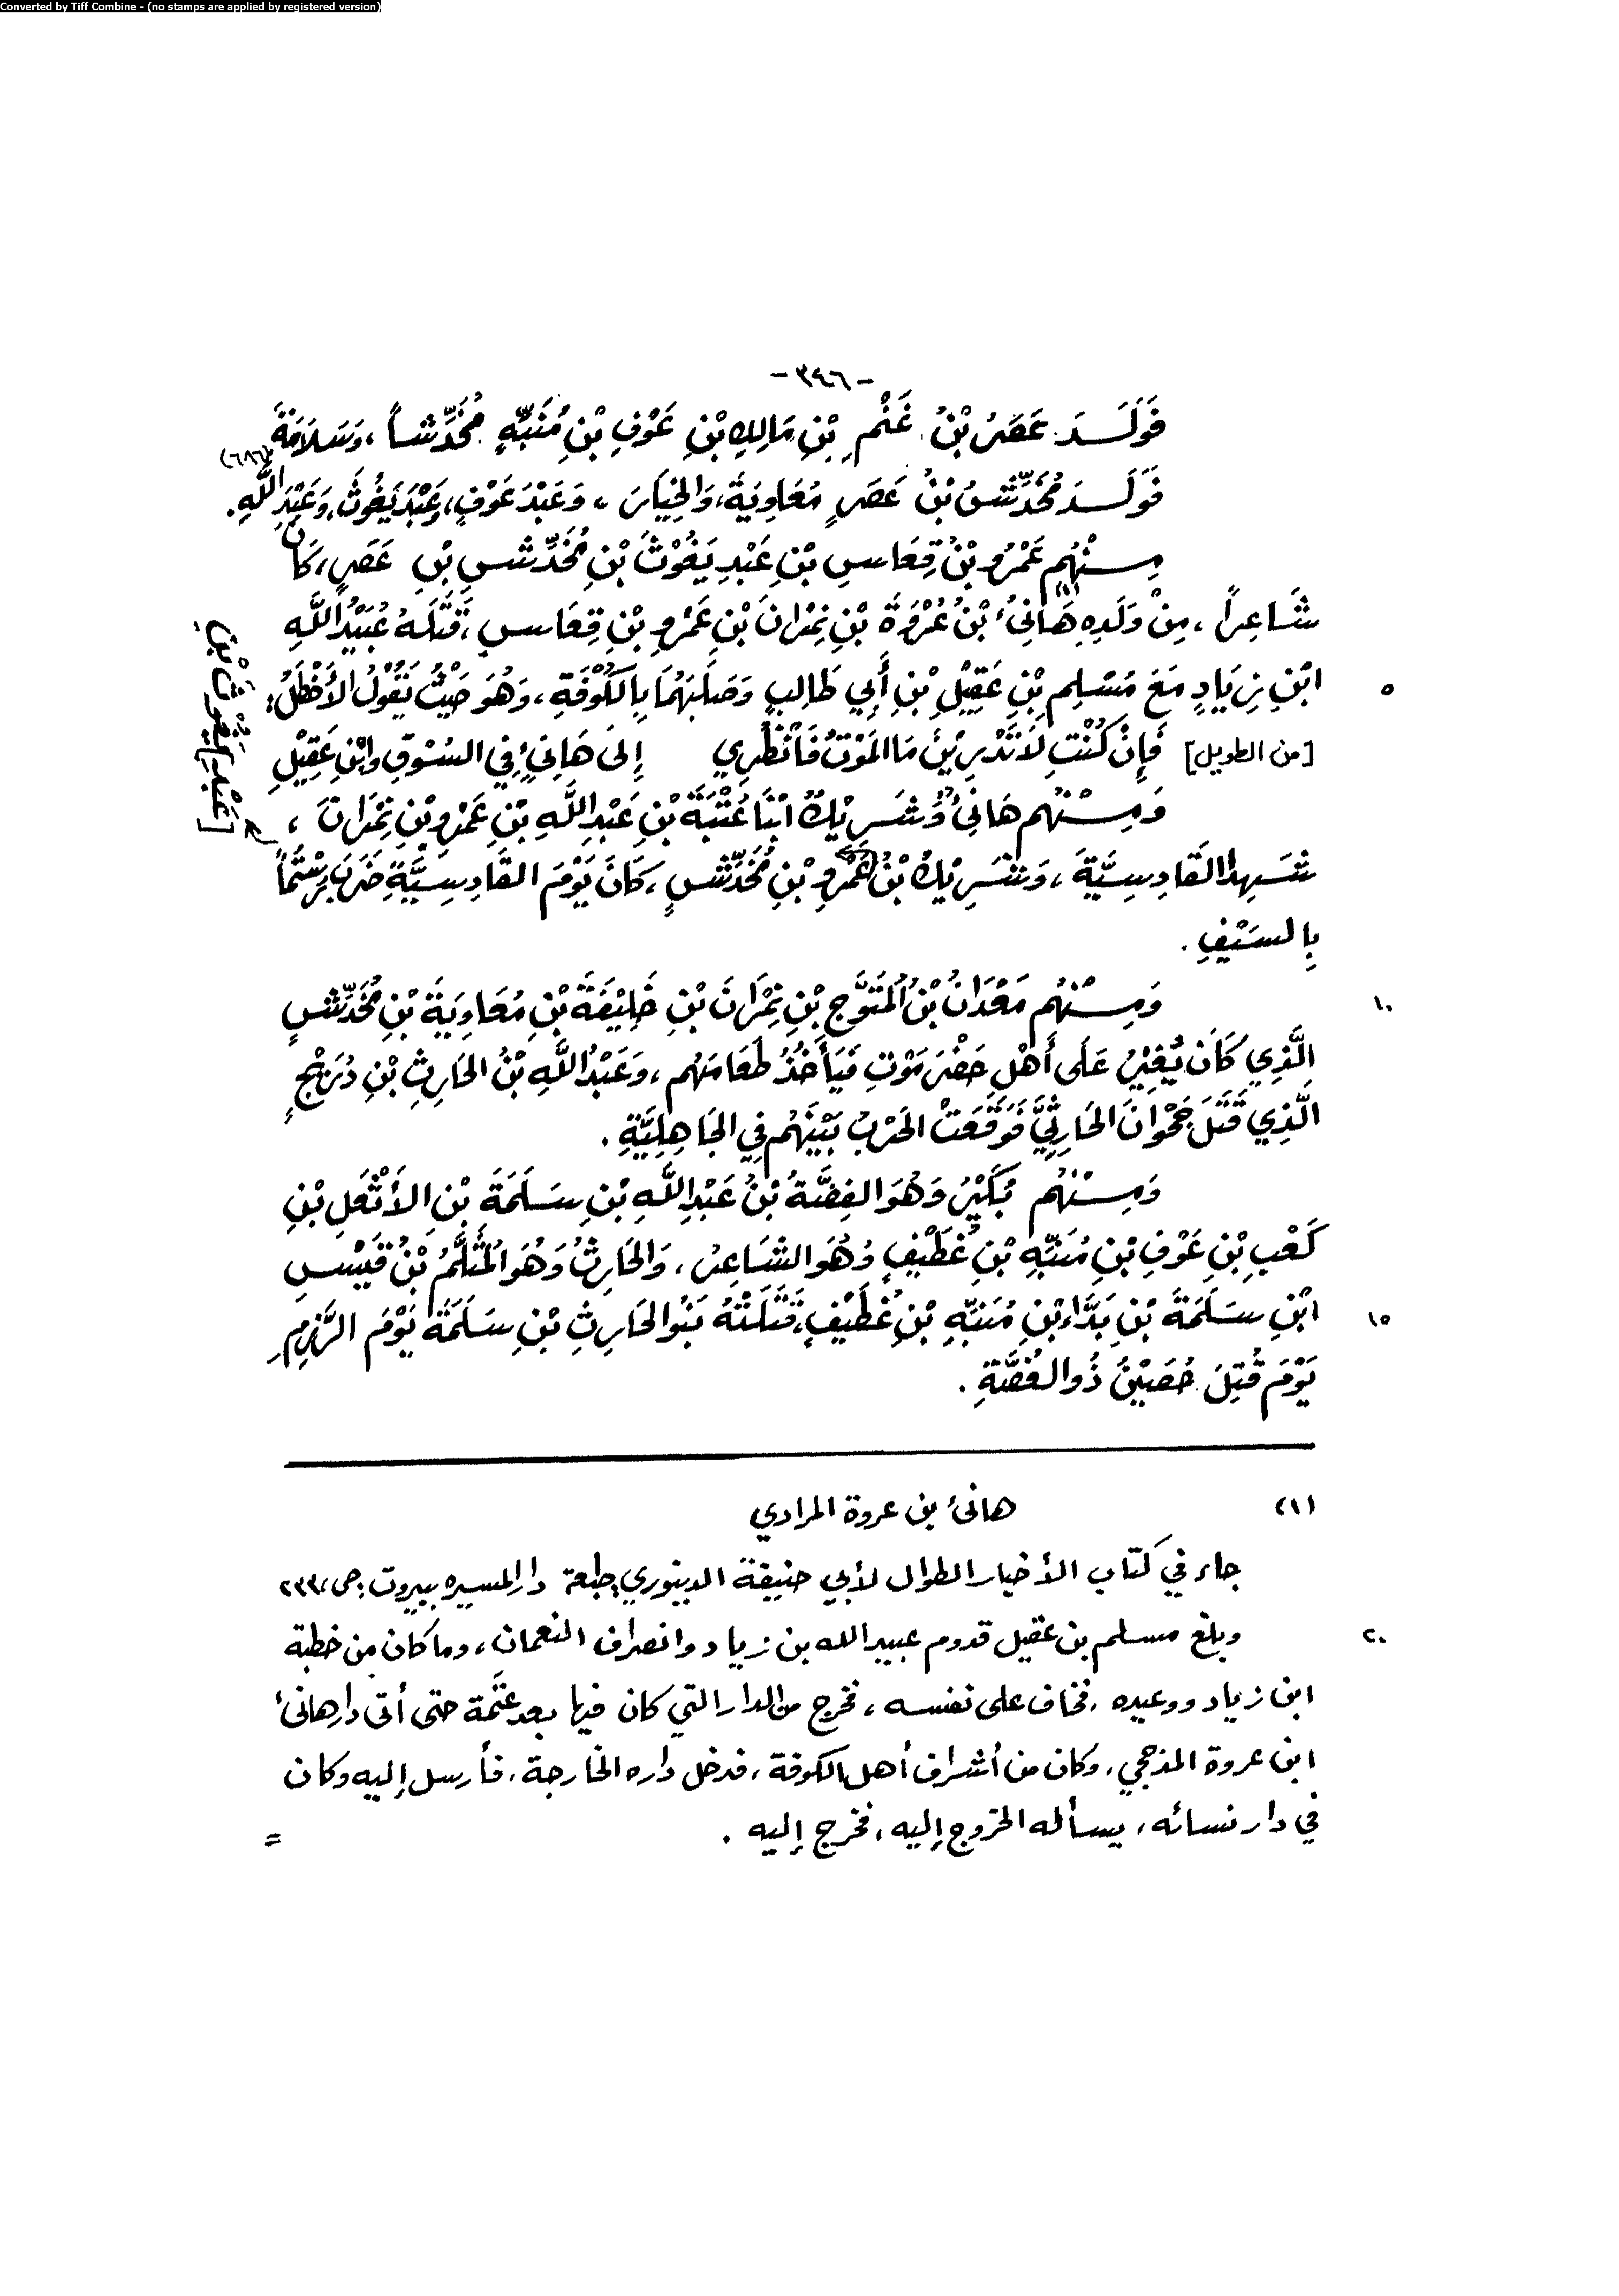 Converted by Tiff Combine - (no stamps are applied by registered version)
-٣٤٦-
فَوَلَــدَ عَصَرُ بْنُ غَنْمِ بْنِ مَالِكِ بْنِ عَوْفِ بْنِ مُنَبِّهٍ مُخَدِّشاً، وَسَلَامَةَ
(٦٨٦)
فَوَلَــدَ مُخَدِّشُ بْنُ عَصَرٍ مُعَاوِيَةَ، وَالخِيَارَ، وَعَبْدَ عَوْفٍ، وَعَبْدَ يَغُوثَ، وَعَبْدَ اللَّهِ.
مِــنْهُم عَمْرُو بْنُ قِعَاسِ بْنِ عَبْدِ يَغُوْثَ بْنِ مُخَدِّشِ بْنِ عَصَرٍ، كَانَ
شَاعِراً، مِنْ وَلَدِهِ هَانِئُ (١) بْنُ عُرْوَةَ بْنِ نِمْرَانَ بْنِ عَمْرِو بْنِ قِعَاسٍ، قَتَلَهُ عُبَيْدُ اللَّهِ
٥ ابْنِ زِيَادٍ مَعَ مُسْلِمِ بْنِ عَقِيْلِ بْنِ أَبِي طَالِبٍ وَصَلَبَهُمَا بِالكُوْفَةِ، وَهُوَ حَيْثُ يَقُوْلُ الأَخْطَلُ:
[من الطويل] فَإِنْ كُنْتِ لَا تَدْرِيْنَ مَا المَوْتُ فَانْظُرِي إِلَى هَانِئٍ فِي السُّوْقِ وابْنِ عَقِيْلِ
وَمِــنْهُم هَانِئُ وَشَرِيْكُ ابْنَا عُتْبَةَ بْنِ عَبْدِ اللَّهِ بْنِ عَمْرِو بْنِ نِمْرَانَ،
[عَبْدِ يَغُوْثَ بْنِ
شَهِدَا القَادِسِيَّةَ، وَشَرِيْكُ بْنُ عَمْرِو بْنِ مُخَدِّشٍ، كَانَ يَوْمَ القَادِسِيَّةِ ضَرَبَ رُسْتُماً
بِالسَيْفِ.
١٠ وَمِــنْهُم مَعْدَانُ بْنُ المُتَوَّجِ بْنِ نِمْرَانَ بْنِ خَلِيْفَةَ بْنِ مُعَاوِيَةَ بْنِ مُخَدِّشٍ
الَّذِي كَانَ يُغِيْرُ عَلَى أَهْلِ حَضْرَمَوْتِ فَيَأْخُذُ طَعَامَهُم، وَعَبْدُ اللَّهِ بْنُ الحَارِثِ بْنِ دُرَيْجٍ
الَّذِي قَتَلَ جَحْوَانَ الحَارِثِيَّ فَوَقَعَتْ الحَرْبُ بَيْنَهُم فِي الجَاهِلِيَّةِ.
وَمِــنْهُم بُكَيْرُ وَهُوَ الفِضَّةُ بْنُ عَبْدِ اللَّهِ بْنِ سَلَمَةَ بْنِ الأَثْعَلِ بْنِ
كَعْبِ بْنِ عَوْفِ بْنِ مُنَبِّهِ بْنِ غُطَيْفٍ وَهُوَ الشَاعِرُ، وَالحَارِثُ وَهُوَ المُثَلَّمُ بْنُ قَيْسِ
١٥ ابْنِ سَلَمَةَ بْنِ بَدَّاءَ بْنِ مُنَبِّهِ بْنِ غُطَيْفٍ، قَتَلَتْهُ بَنُو الحَارِثِ بْنِ سَلَمَةَ يَوْمَ الرَّزْمِ
يَوْمَ قُتِلَ حُصَيْنُ ذُو الغُصَّةِ.
(١) هانئ بن عروة المرادي
جاء في كتاب الأخبار الطوال لأبي حنيفة الدينوري طبعة دار المسيره ببيروت: ص،
٢٠ وبلغ مسلم بن عقيل قدوم عبيد الله بن زياد وانصراف النعمان، وما كان من خطبة
ابن زياد ووعيده، فخاف على نفسه، فخرج من الدار التي كان فيها بعد عتَمة حتى أتى دار هانئ
ابن عروة المذحجي، وكان من أشراف أهل الكوفة، فدخل داره الخارجة، فأرسل إليه وكان
في دار نسائه، يسأله الخروج إليه، فخرج إليه.
=